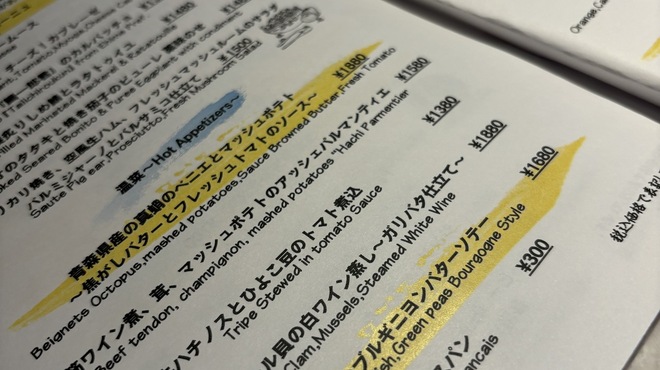 カプレーゼ
Tomato, Mozza Cheese
¥1480
のカルパッチョ
とラタトゥイユ
Grilled Marinated Mackerel & Ratatouille
のタタキと焼き茄子のピューレ
Seared Bonito & Puree Eggplant with condiment
¥1500
カリカリ焼き、空風生ハム、フレッシュマッシュルームのサラダ
パルミジャーノとバルサミコ仕立て
Saute Pig ear, Prosciutto, Fresh Mushroom Salad
温菜〜Hot Appetizers〜
青森県産の真蛸のベニエとマッシュポテト
〜焦がしバターとフレッシュトマトのソース〜
¥1880
Beignets Octopus, mashed Potatoes, Sauce Browned Butter, Fresh Tomato
筋ワイン煮、茸、マッシュポテトのアッシェパルマンティエ
¥1580
Beef tendon, champignon, mashed potatoes "Hachi Parmentier
ハチノスとひよこ豆のトマト煮込
¥1380
Tripe Stewed in tomato Sauce
ル貝の白ワイン蒸し〜ガリバタ仕立て〜
¥1880
Clam, Mussels, Steamed White Wine
ブルギニヨンバターソテー
¥1680
sh, Green peas Bourgogne Style
スパン
¥300
ancais
Orange, Ca
税込価格で表記し